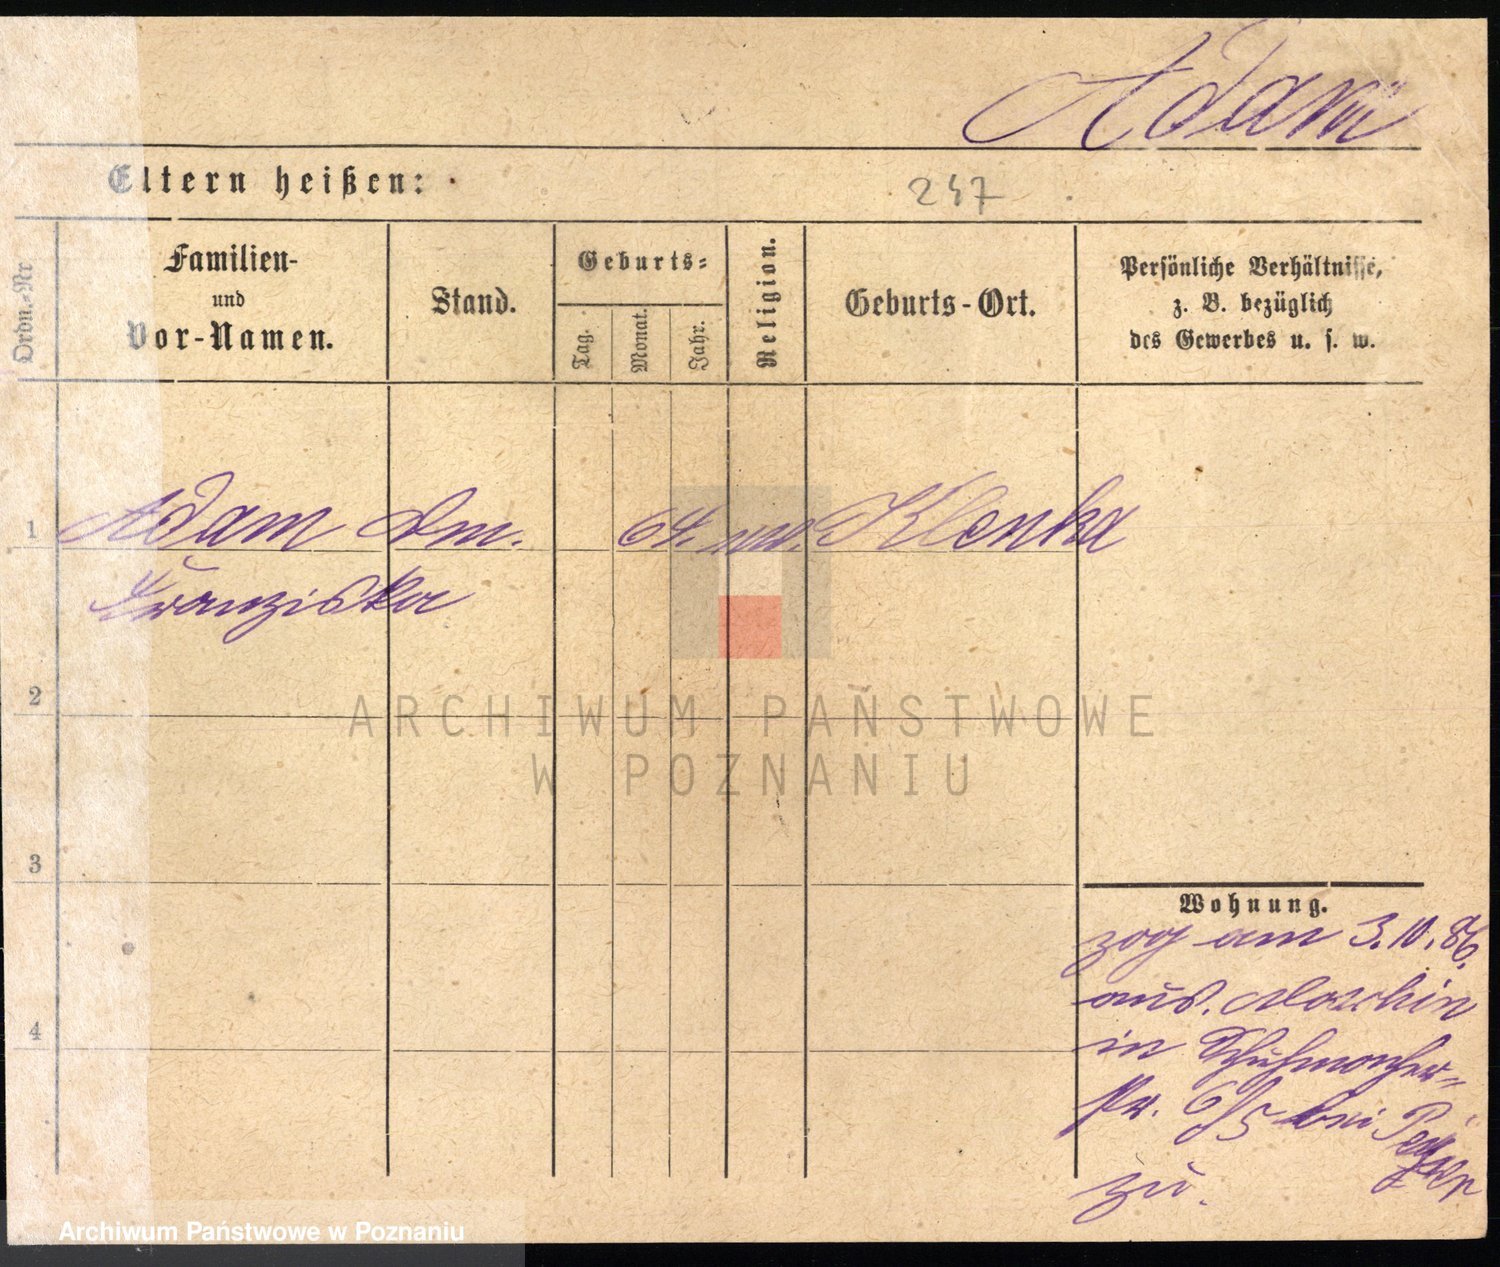 Adam
Eltern heißen:
247
Ordn.-Nr
Familien-
und
Vor-Namen.
Stand.
Geburts-
Tag.
Monat.
Jahr.
Religion.
Geburts-Ort.
Persönliche Verhältnisse,
z. B. bezüglich
des Gewerbes u. s. w.
1 Adam 64. Klenka
Franziska
2
ARCHIWUM PAŃSTWOWE
W POZNANIU
3
Wohnung.
zog am 3.10.86.
aus
4
in Schuhmacher-
6/5 bei
zu.
Archiwum Państwowe w Poznaniu